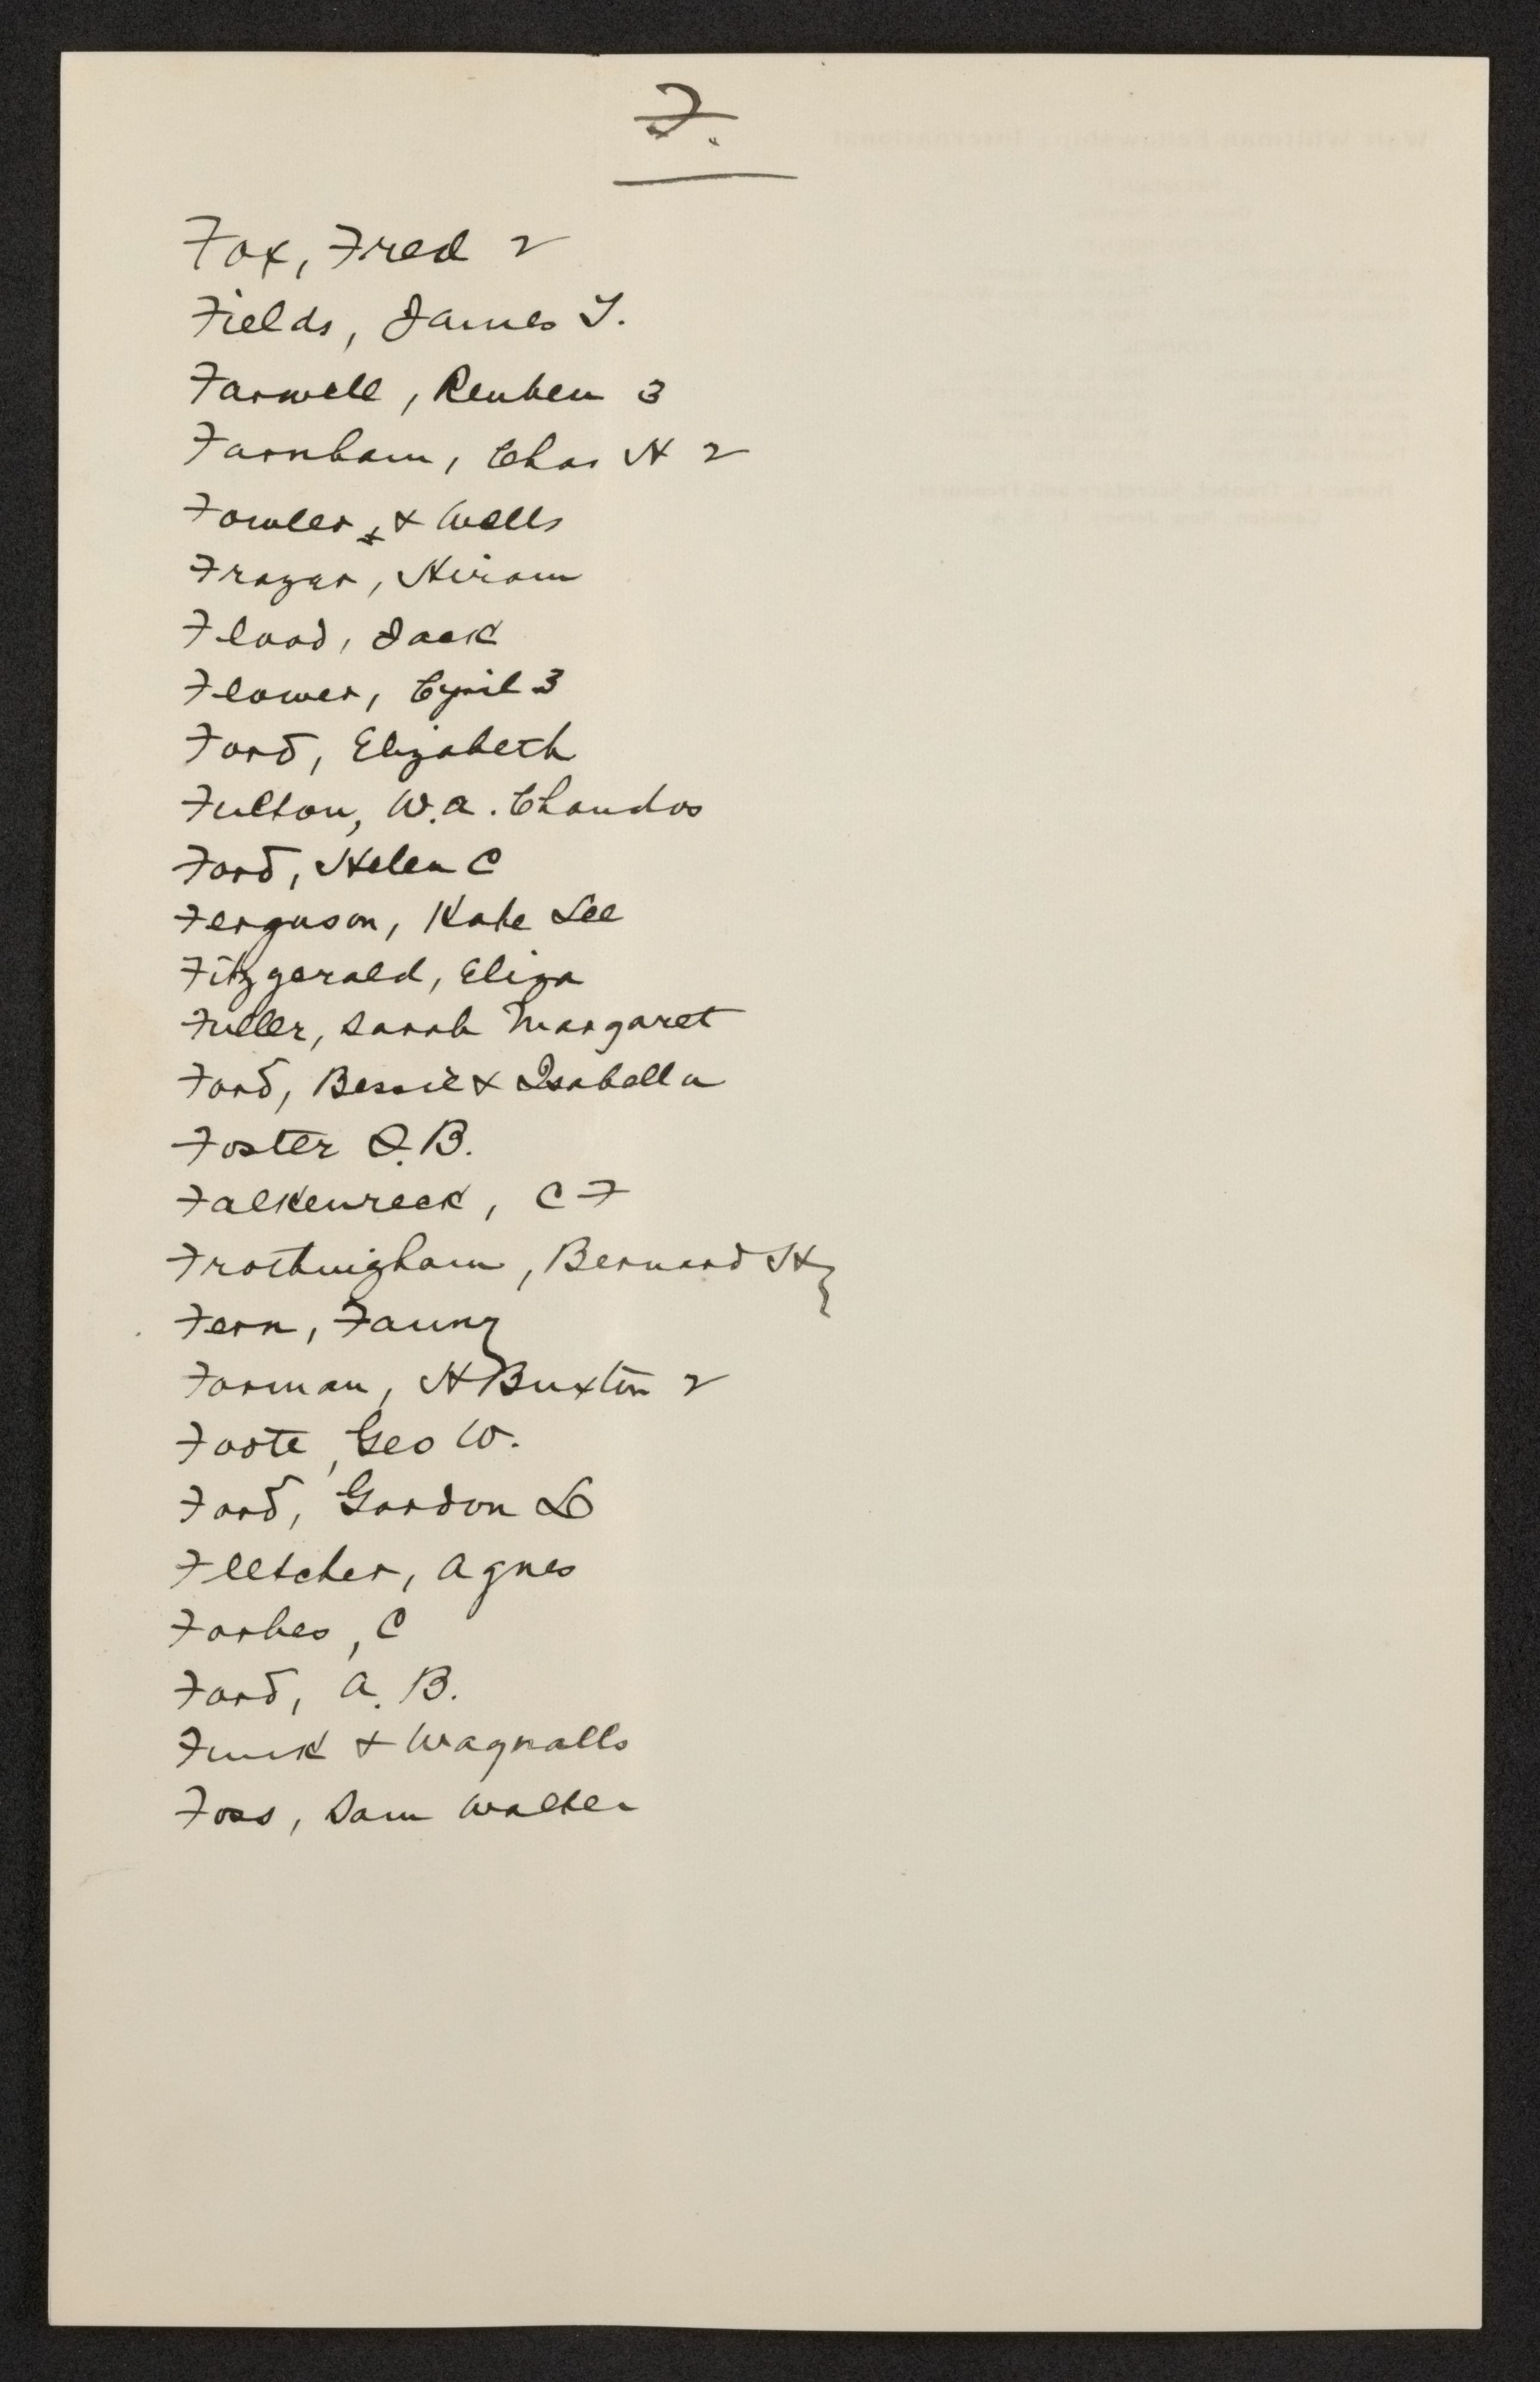 F.
Fox, Fred 2
Fields, James T.
Farwell, Reuben 3
Farnham, Chas H 2
Fowler & Wells
Frazar, Hiram
Flood, Jack
Flower, Cyril 3
Ford, Elizabeth
Fulton, W.A. Chandos
Ford, Helen C
Ferguson, Kate Lee
Fitzgerald, Eliza
Fuller, Sarah Margaret
Ford, Bessie & Isabella
Foster O.B.
Falkenreck, C F
Frothingham, Bernard H
Fern, Fanny
Forman, H Buxton 2
Foote, Geo W.
Ford, Gordon L
Fletcher, Agnes
Forbes, C
Ford, A. B.
Funk & Wagnalls
Foss, Sam Walter